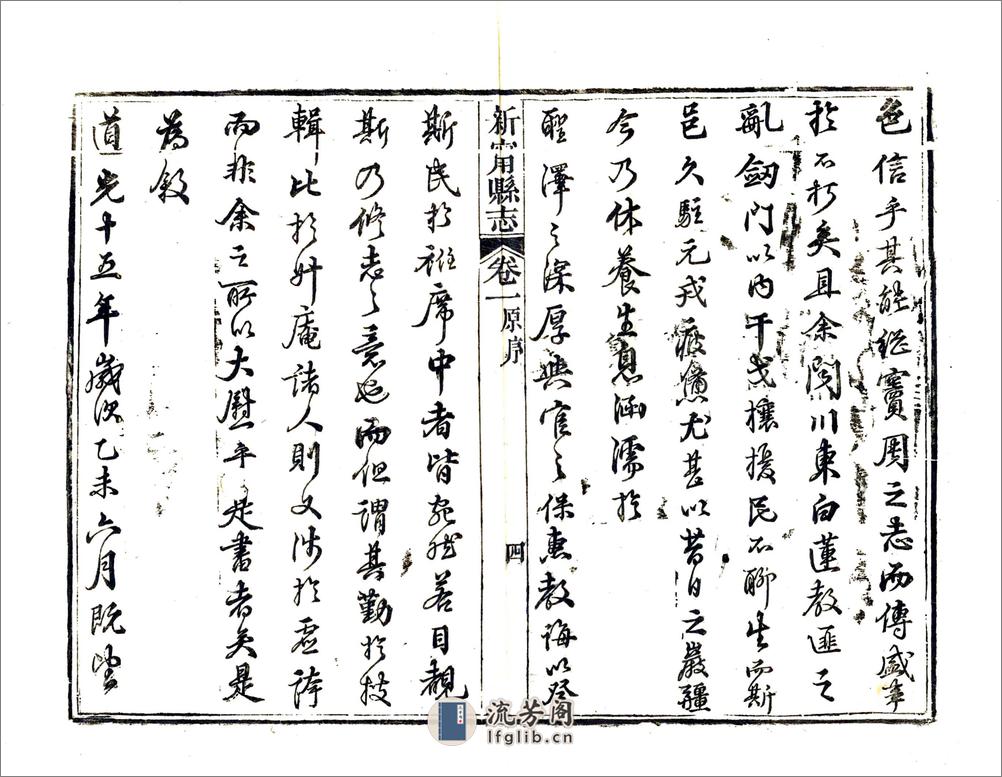 色信乎其能繼竇周之志而傳盛事
於不朽矣且余閱川東白蓮教匪之
亂劒門以內干戈攘擾民不聊生而斯
邑久駐元戎疲憊尤甚以昔日之巖疆
今乃休養生息涵濡於
聖澤之深厚與官之保惠教誨以登
新甯縣志 卷一 原序 四
斯民於袵席中者皆宛然若目覩
斯乃修志之意也而但謂其勤於技
輯比於升庵諸人則又涉於虛誇
而非余之所以大慰乎是書者矣是
為敘
道光十五年歲次乙未六月既望
流芳阁
lfglib.cn